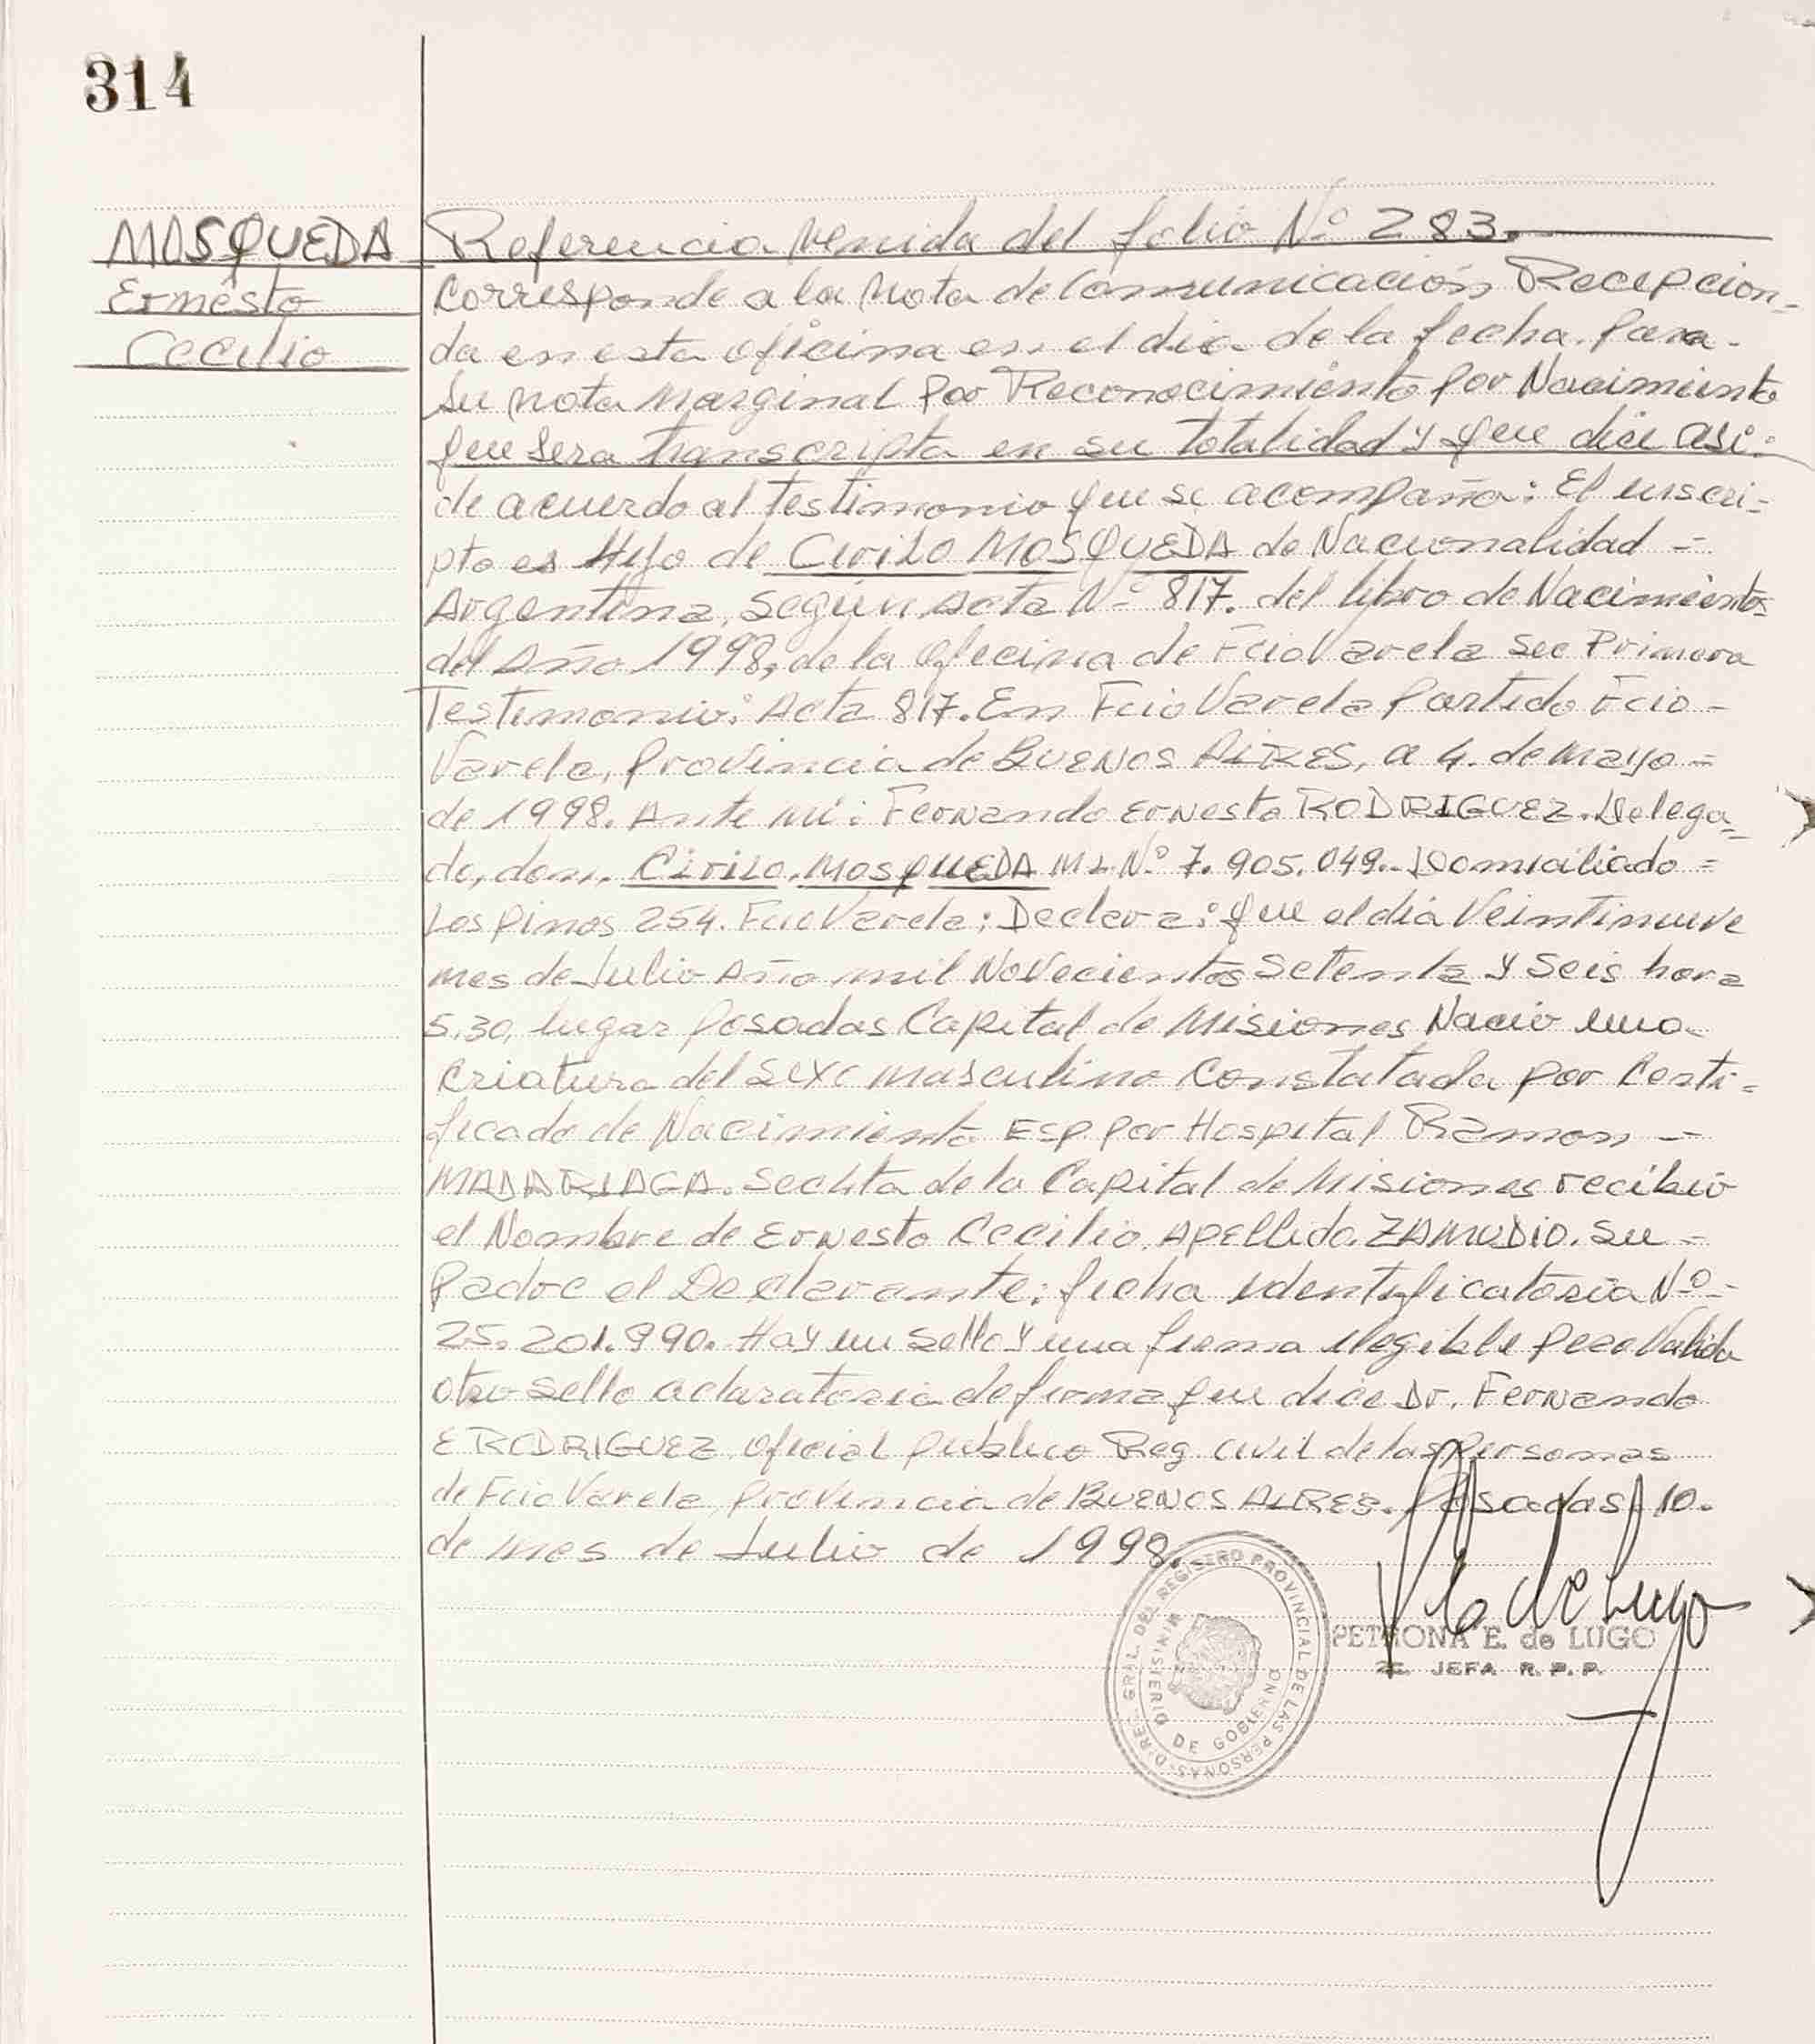 314
MOSQUEDA
Ernesto
Cecilio
Referencia venida del folio Nº 283.
Corresponde a la Nota de Comunicación Recepcion-
da en esta oficina en el dia de la fecha. Para-
su nota Marginal por Reconocimiento por Nacimiento
que sera transcripta en su totalidad y que dice asi:
de acuerdo al testimonio que se acompaña: El inscri-
pto es Hijo de Cirilo MOSQUEDA de Nacionalidad -
Argentina, Según Acta Nº 817. del libro de Nacimiento
del Año 1998, de la Oficina de Fcio Varela Sec Primera
Testimonio: Acta 817. En Fcio Varela Partido Fcio-
Varela, Provincia de BUENOS AIRES, a 4. de mayo =
de 1998. Ante mi: Fernando Ernesto RODRIGUEZ. Delega-
do, don, Cirilo, MOSQUEDA M.I. Nº 7.905.049.- Domiciliado =
Los Pinos 254. Fcio Varela; Declara: que el dia Veintinueve
mes de Julio Año mil Novecientos Setenta y Seis hora
5.30, lugar Posadas Capital de Misiones Nació una
Criatura del sexo masculino Constatada por Certi=
ficado de Nacimiento Esp. por Hospital Ramon -
MADARIAGA. Sec 4ta de la Capital de Misiones recibió
el Nombre de Ernesto Cecilio, Apellido ZAMUDIO. Su =
Padre el Declarante; ficha identificatoria Nº-
25.201.990. Hay un sello y una firma ilegible pero Valida
otro sello aclaratoria de firma que dice Dr. Fernando
E RODRIGUEZ Oficial Publico Reg. civil de las Personas
de Fcio Varela, Provincia de BUENOS AIRES. Posadas, 10.
de mes de Julio de 1998.
DIREC. GRAL. DEL REGISTRO PROVINCIAL DE LAS PERSONAS
MINISTERIO DE GOBIERNO
PETRONA E. de LUGO
JEFA R. P. P.